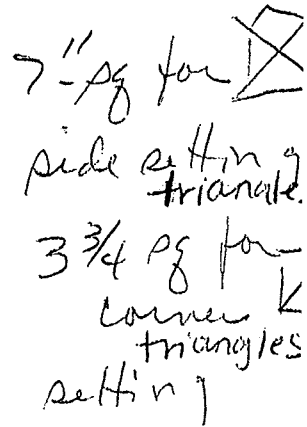 7" sq for
side setting
triangle.
3 3/4 sq for
corner
triangles
setting